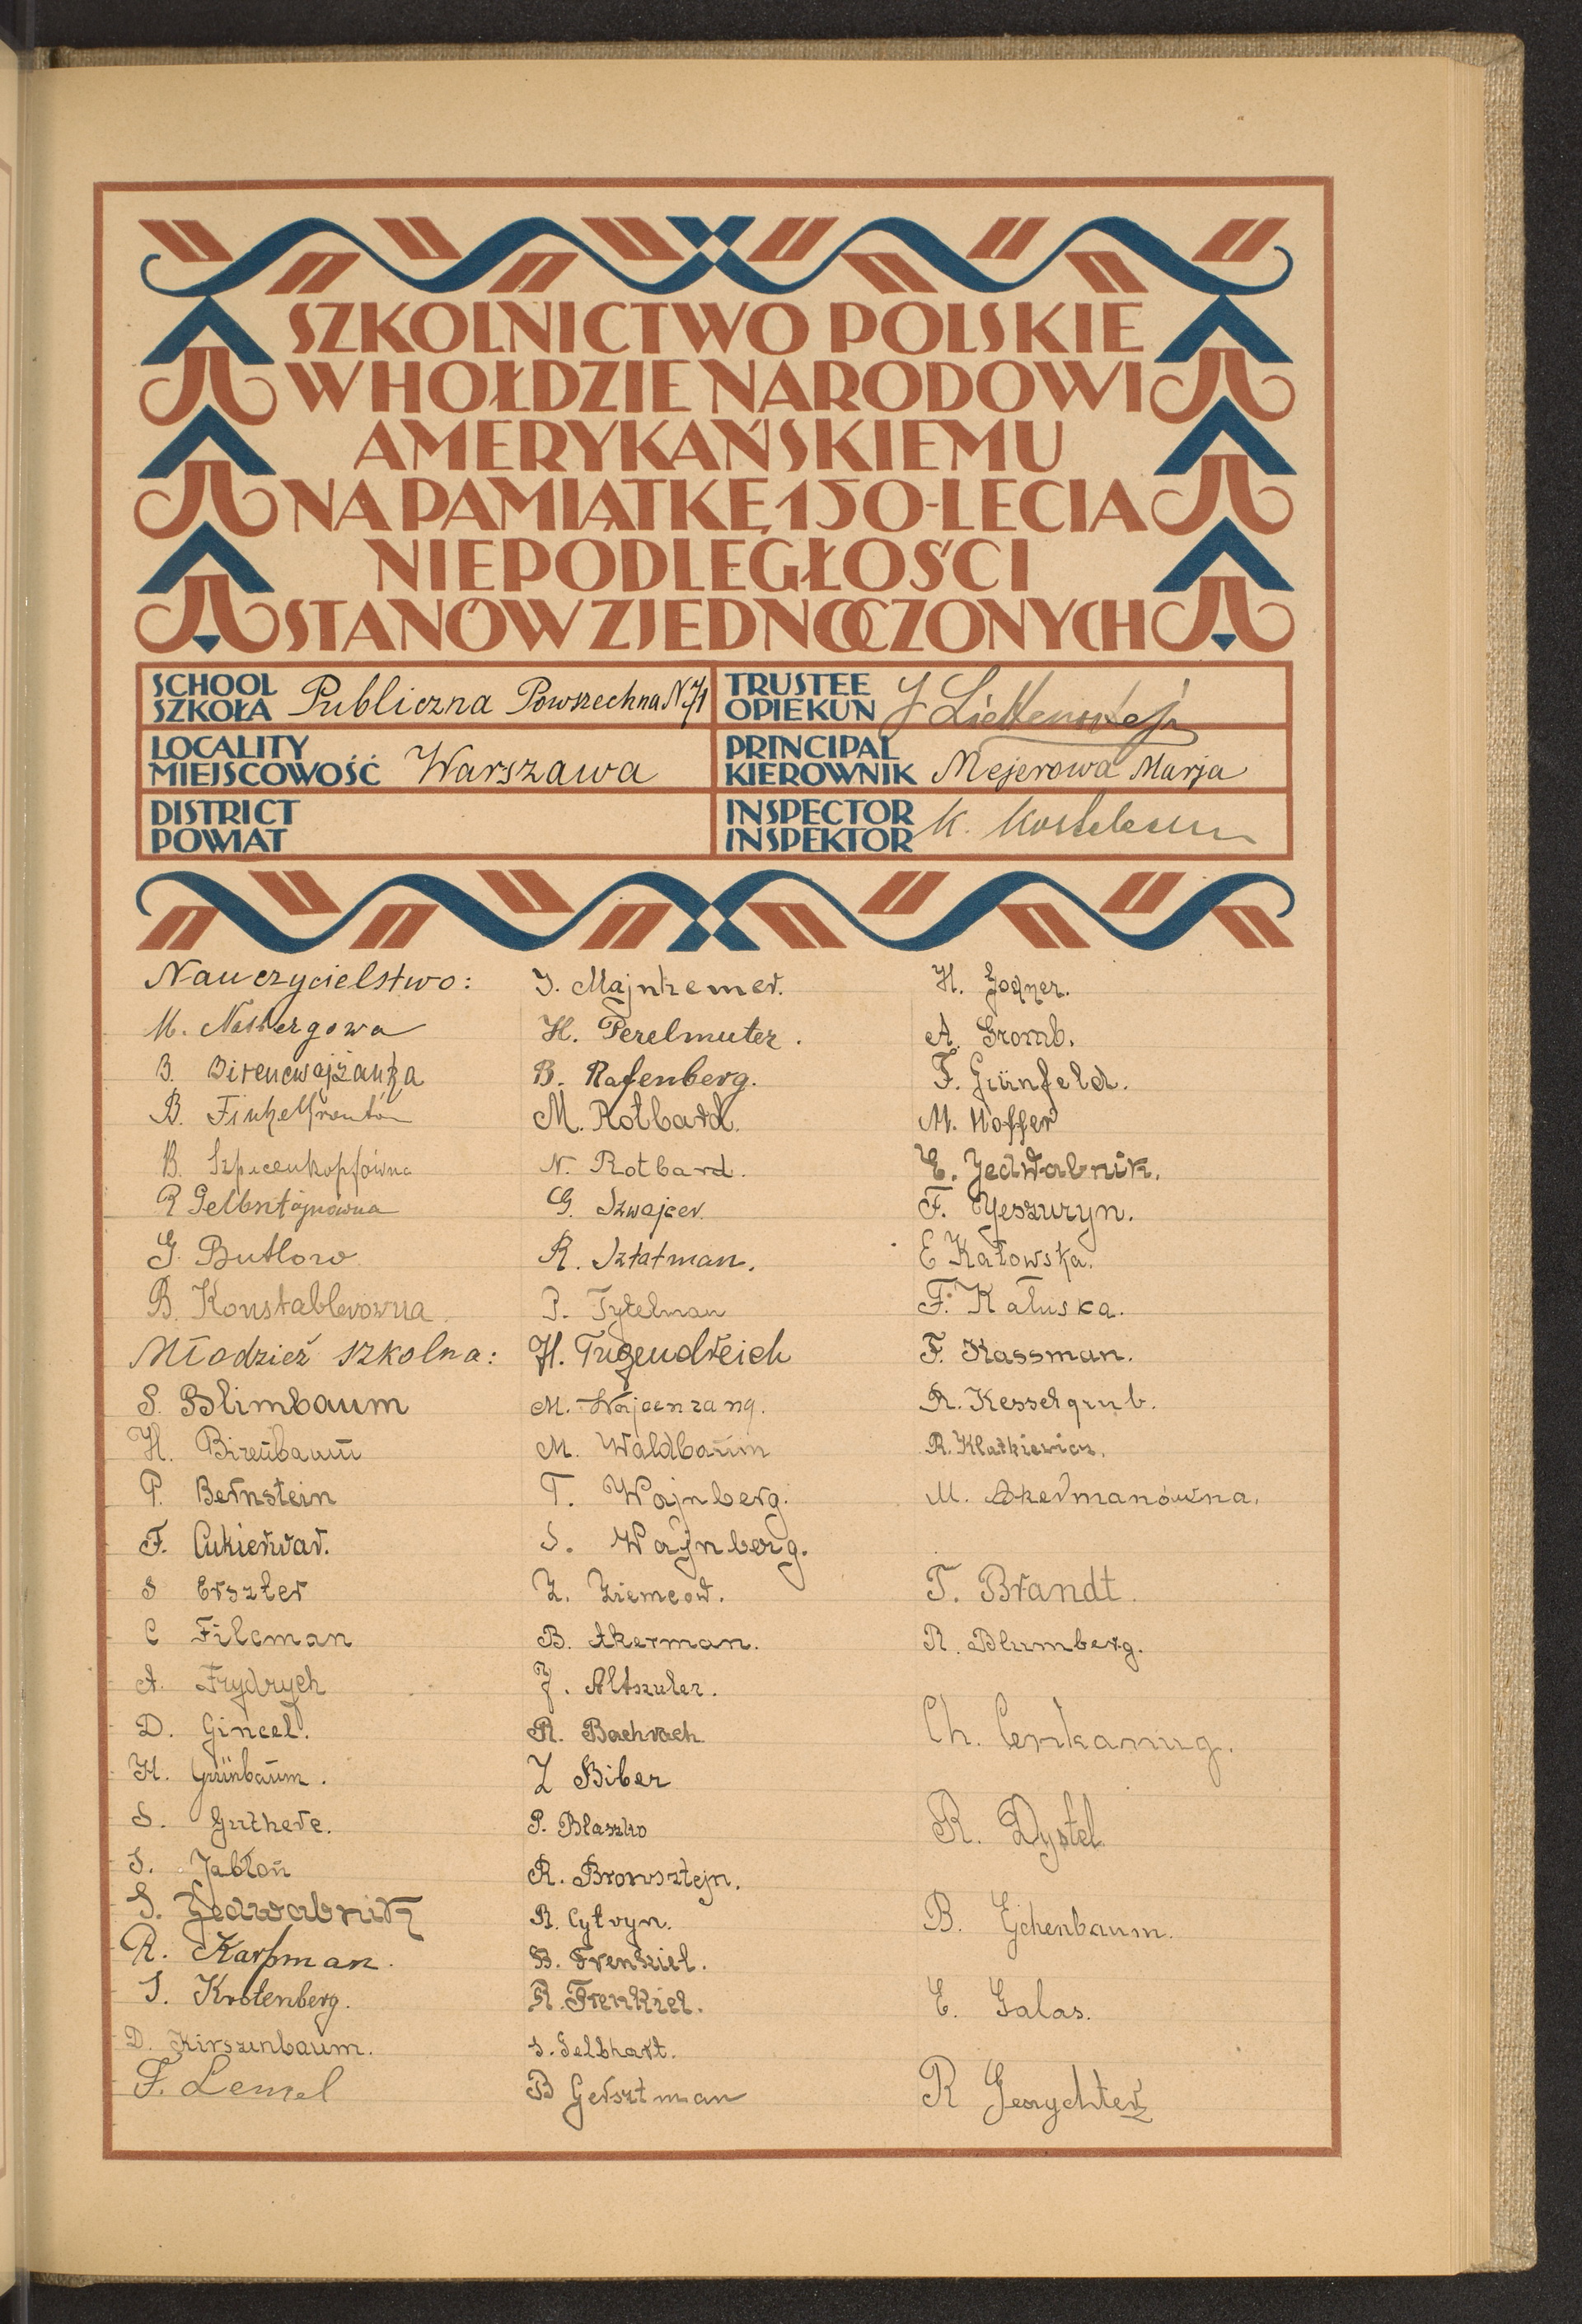 SZKOLNICTWO POLSKIE
W HOŁDZIE NARODOWI
AMERYKAŃSKIEMU
NA PAMIĄTKĘ 150-LECIA
NIEPODLEGŁOŚCI
STANÓW ZJEDNOCZONYCH
SCHOOL
SZKOŁA Publiczna Powszechna N 71
TRUSTEE
OPIEKUN J
LOCALITY
MIEJSCOWOŚĆ Warszawa
PRINCIPAL
KIEROWNIK Mejerowa Marja
DISTRICT
POWIAT
INSPECTOR
INSPEKTOR K.
Nauczycielstwo:
M. Nasbergowa
B. Birencwajżanka
B.
B. Szpicenkopfówna
R Gelbsztajnówna
G. Butlow
B. Konstablerowna
Młodzież szkolna:
S. Blimbaum
H. Birenbaum
P. Bernstein
F. Cukierwar.
S Erszler
C Filcman
A. Frydrych
D. Gincel.
H. Grünbaum.
S. Gutherc.
S. Jabłoń
S. Jedwabnik
R. Karpman.
S. Krotenberg.
D. Kirszenbaum.
F. Lemel
I. Majnhemer.
H. Perelmuter.
B. Rafenberg.
M. Rotbard.
N. Rotbard.
G. Szwajcer.
R. Sztatman.
P. Tytelman
H. Tugendreich
M. Wajcenzang.
M. Waldbaum
T. Wajnberg.
S. Wajnberg.
Z. Ziemcow.
B. Akerman.
J. Altszuler.
R. Bachrach
Z Biber
P. Blaszko
R. Bronsztejn.
R. Cytryn.
B. Frenkiel.
R. Frenkiel.
S. Gelbhart.
B Gersztman
H. Gogner.
A. Gromb.
F. Grünfeld.
M. Hoffer
E. Jedwabnik.
F. Jeszuryn.
E Katowska.
F. Kałuska.
F. Kassman.
R. Kesselgrub.
R. Klatkiewicz.
M. Akermanówna.
T. Brandt.
R. Blumberg.
Ch.
R. Dystel.
B. Ejchenbaum.
E. Galas.
R